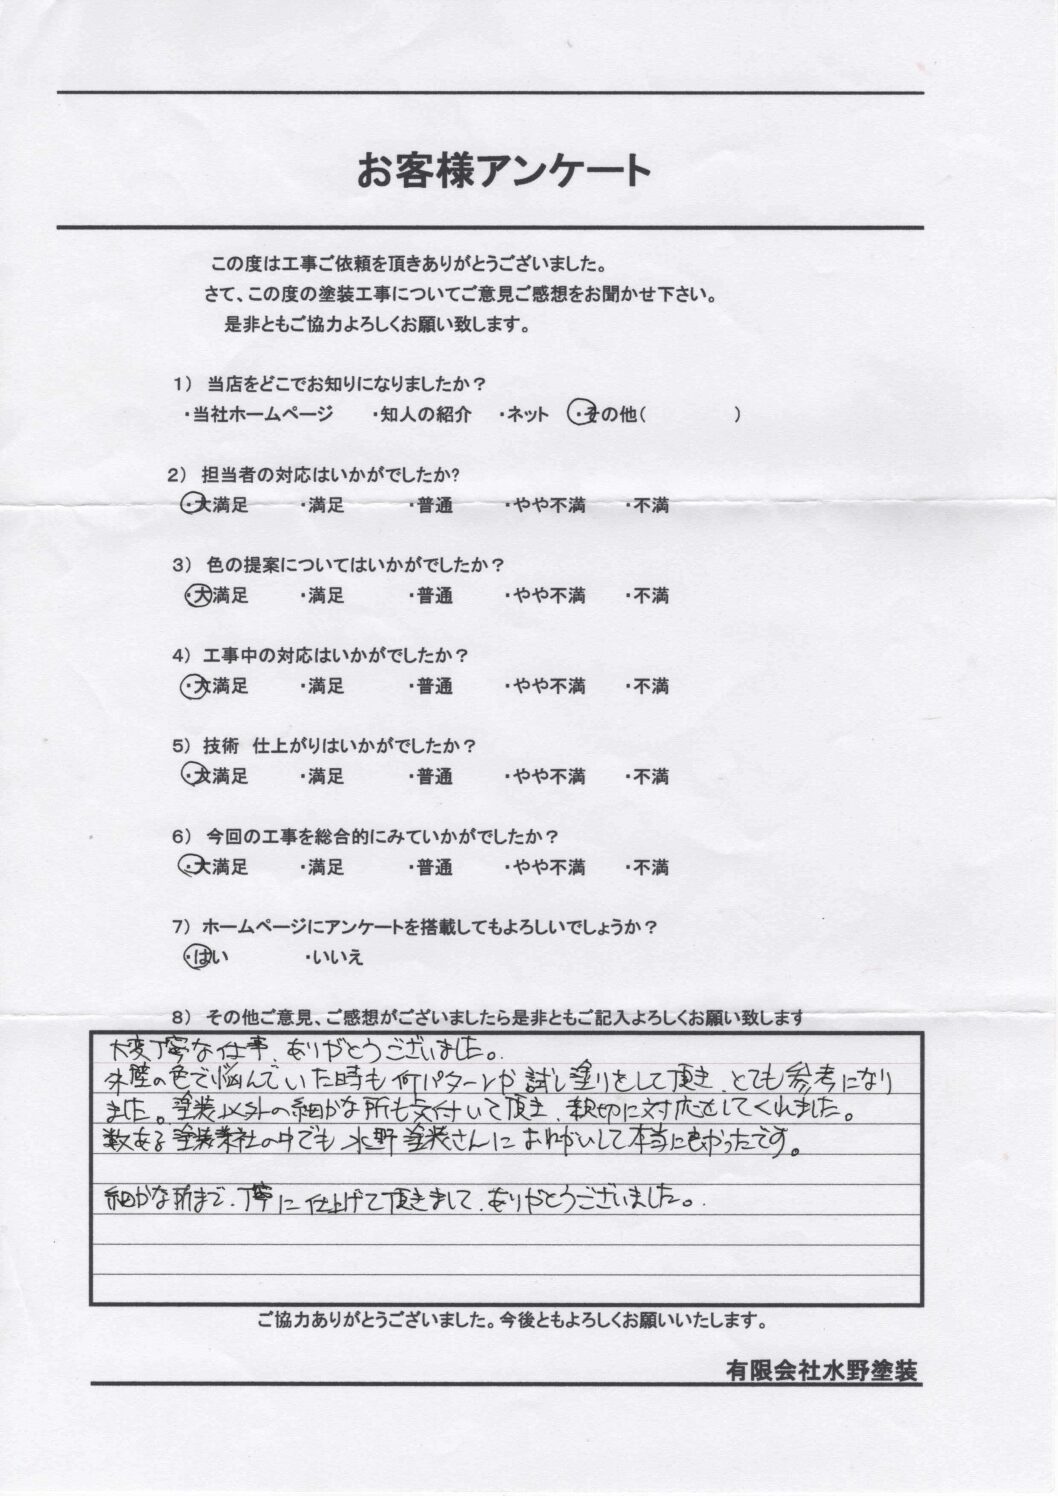 お客様アンケート
この度は工事ご依頼を頂きありがとうございました。
さて、この度の塗装工事についてご意見ご感想をお聞かせ下さい。
是非ともご協力よろしくお願い致します。
1） 当店をどこでお知りになりましたか？
・当社ホームページ ・知人の紹介 ・ネット ・その他（ ）
2） 担当者の対応はいかがでしたか？
・大満足 ・満足 ・普通 ・やや不満 ・不満
3） 色の提案についてはいかがでしたか？
・大満足 ・満足 ・普通 ・やや不満 ・不満
4） 工事中の対応はいかがでしたか？
・大満足 ・満足 ・普通 ・やや不満 ・不満
5） 技術 仕上がりはいかがでしたか？
・大満足 ・満足 ・普通 ・やや不満 ・不満
6） 今回の工事を総合的にみていかがでしたか？
・大満足 ・満足 ・普通 ・やや不満 ・不満
7） ホームページにアンケートを搭載してもよろしいでしょうか？
・はい ・いいえ
8） その他ご意見、ご感想がございましたら是非ともご記入よろしくお願い致します
大変丁寧な仕事、ありがとうございました。
外壁の色で悩んでいた時も何パターンか試し塗りをして頂き、とても参考になり
ました。塗装以外の細かな所も気付いて頂き、親切に対応をしてくれました。
数ある塗装業社の中でも水野塗装さんにおねがいして本当に良かったです。
細かな所まで、丁寧に仕上げて頂きまして、ありがとうございました。
ご協力ありがとうございました。今後ともよろしくお願いいたします。
有限会社水野塗装